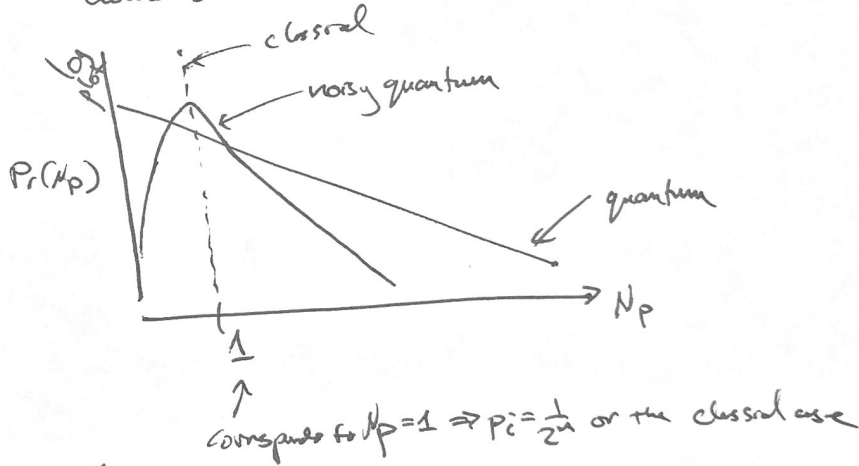 classical
log
noisy quantum
Pr(Np)
quantum
Np
1
corresponds to Np=1 ⇒ pi = 1/2^n or the classical case